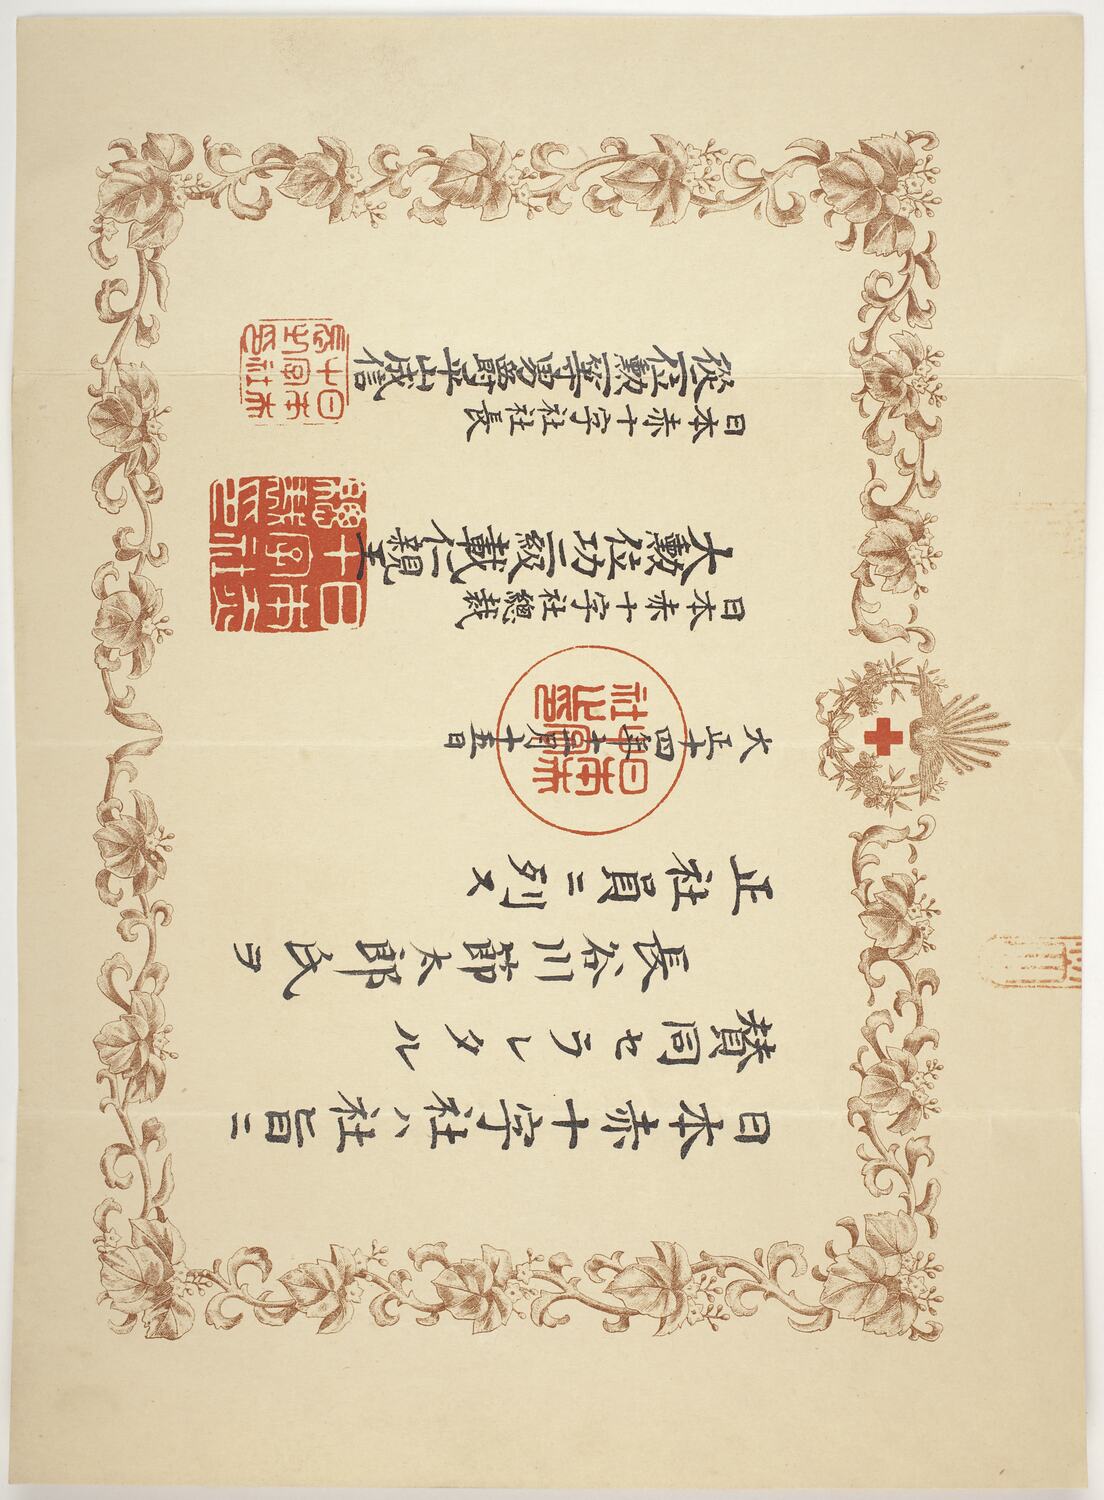 日本赤十字社ハ社旨ニ
賛同セラレタル
長谷川節太郎氏ヲ
正社員ニ列ス
大正十四年十二月十五日
日本赤十字社之印
日本赤十字社總裁
大勲位功二級載仁親王
日本赤十字社總裁印
日本赤十字社社長
從二位勲一等男爵平山成信
日本赤十字社長之印